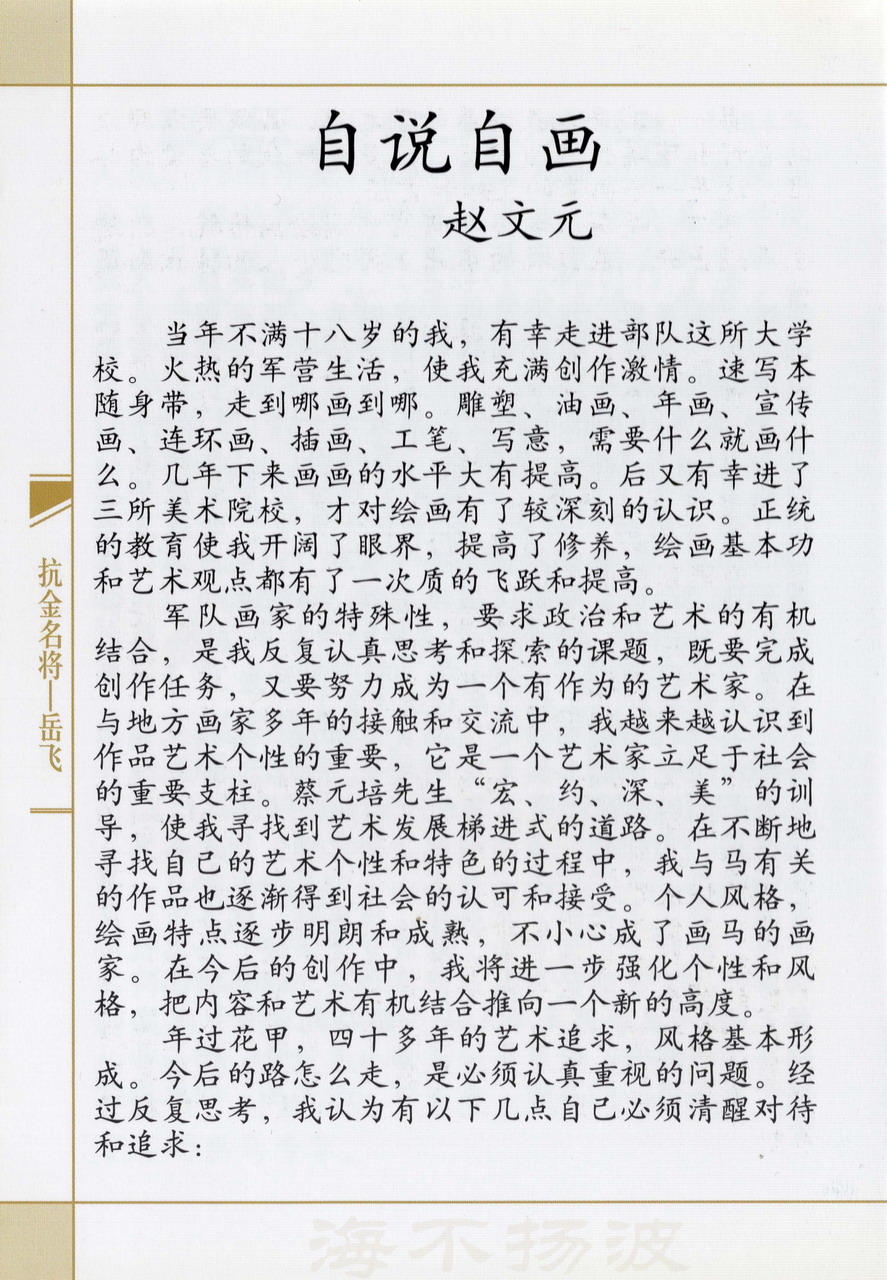 自说自画
赵文元
当年不满十八岁的我，有幸走进部队这所大学
校。火热的军营生活，使我充满创作激情。速写本
随身带，走到哪画到哪。雕塑、油画、年画、宣传
画、连环画、插画、工笔、写意，需要什么就画什
么。几年下来画画的水平大有提高。后又有幸进了
三所美术院校，才对绘画有了较深刻的认识。正统
的教育使我开阔了眼界，提高了修养，绘画基本功
和艺术观点都有了一次质的飞跃和提高。
军队画家的特殊性，要求政治和艺术的有机
结合，是我反复认真思考和探索的课题，既要完成
创作任务，又要努力成为一个有作为的艺术家。在
与地方画家多年的接触和交流中，我越来越认识到
作品艺术个性的重要，它是一个艺术家立足于社会
的重要支柱。蔡元培先生“宏、约、深、美”的训
导，使我寻找到艺术发展梯进式的道路。在不断地
寻找自己的艺术个性和特色的过程中，我与马有关
的作品也逐渐得到社会的认可和接受。个人风格，
绘画特点逐步明朗和成熟，不小心成了画马的画
家。在今后的创作中，我将进一步强化个性和风
格，把内容和艺术有机结合推向一个新的高度。
年过花甲，四十多年的艺术追求，风格基本形
成。今后的路怎么走，是必须认真重视的问题。经
过反复思考，我认为有以下几点自己必须清醒对待
和追求：
抗金名将—岳飞
海不扬波